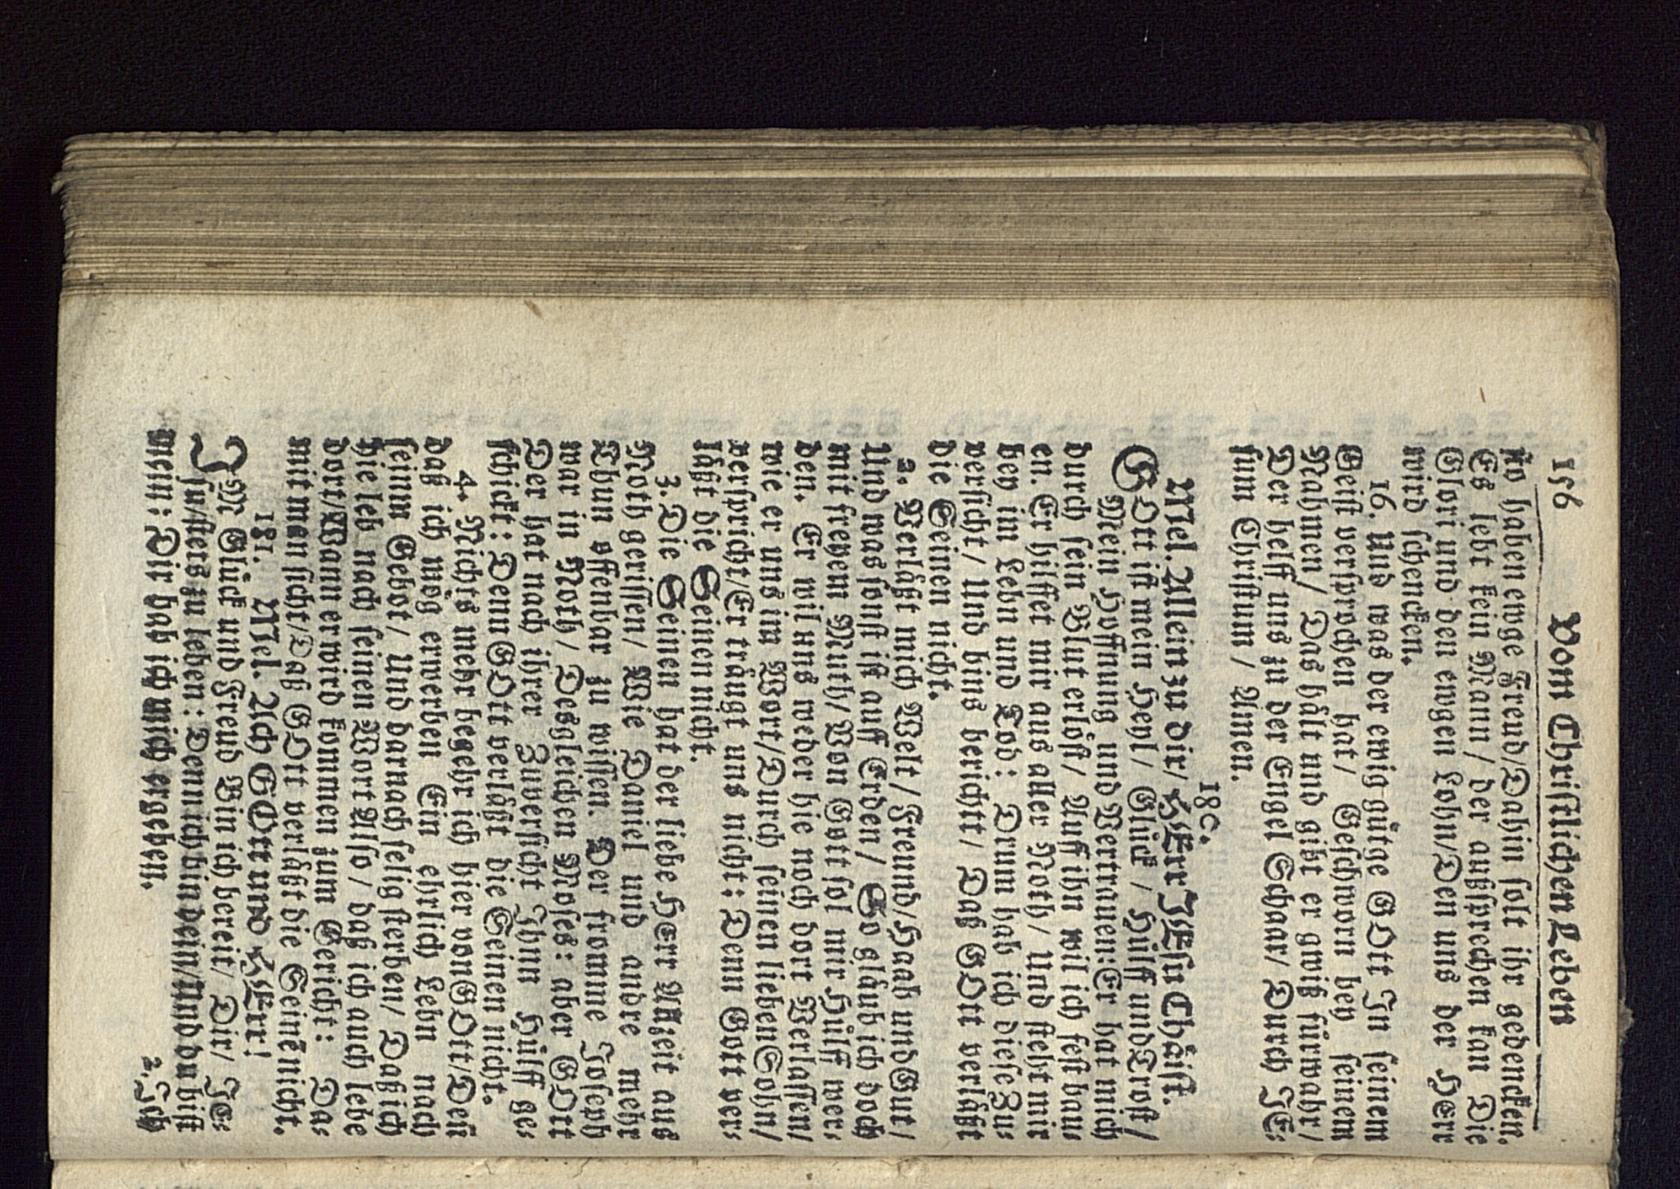 156 Vom Christlichen Leben
wo haben ewge Freud/Dahin solt ihr gedencken.
Es lebt kein Mann / der außsprechen kan Die
Glori und den ewgen Lohn/Den uns der Herr
wird schencken.
16. Und was der ewig gütge GOtt In seinem
Geist versprochen hat / Geschworn bey seinem
Nahmen / Das hält und gibt er gwiß fürwahr /
Der helff uns zu der Engel Schaar/ Durch JE-
sum Christum / Amen.
180.
Mel. Allein zu dir/ HErr JEsu Christ.
GOtt ist mein Heyl / Glück / Hülff und Trost /
Mein Hoffnung und Vertrauen: Er hat mich
durch sein Blut erlöst / Auff ihn wil ich fest bau-
en. Er hilffet mir aus aller Noth / Und steht mir
bey im Lebn und Tod: Drum hab ich diese Zu-
versicht / Und bins bericht / Daß GOtt verläßt
die Seinen nicht.
2. Verläßt mich Welt / Freund/Haab und Gut /
Und was sonst ist auff Erden / So gläub ich doch
mit freyem Muth/ Von Gott sol mir Hülff wer-
den. Er wil uns weder hie noch dort Verlassen/
wie er uns im Wort/Durch seinen lieben Sohn/
verspricht/Er träugt uns nicht: Denn Gott ver-
läßt die Seinen nicht.
3. Die Seinen hat der liebe Herr Allzeit aus
Noth gerissen / Wie Daniel und andre mehr
Thun offenbar zu wissen. Der fromme Joseph
war in Noth / Desgleichen Moses: aber GOtt
Der hat nach ihrer Zuversicht Ihnn Hülff ge-
schickt: Denn GOtt verläßt die Seinen nicht.
4. Nichts mehr begehr ich hier von GOtt/Den
daß ich mög erwerben Ein ehrlich Lebn nach
seinm Gebot / Und darnach selig sterben/ Daß ich
hie leb nach seinen Wort Also / daß ich auch lebe
dort/Wann er wird kommen zum Gericht: Da-
mit man sicht Daß GOtt verläßt die Seinē nicht.
181. Mel. Ach GOtt und HErr!
IM Glück und Freud Bin ich bereit/ Dir/ JE-
su/stets zu leben: Denn ich bin dein/Und du bist
mein: Dir hab ich mich ergeben.
2. Ich